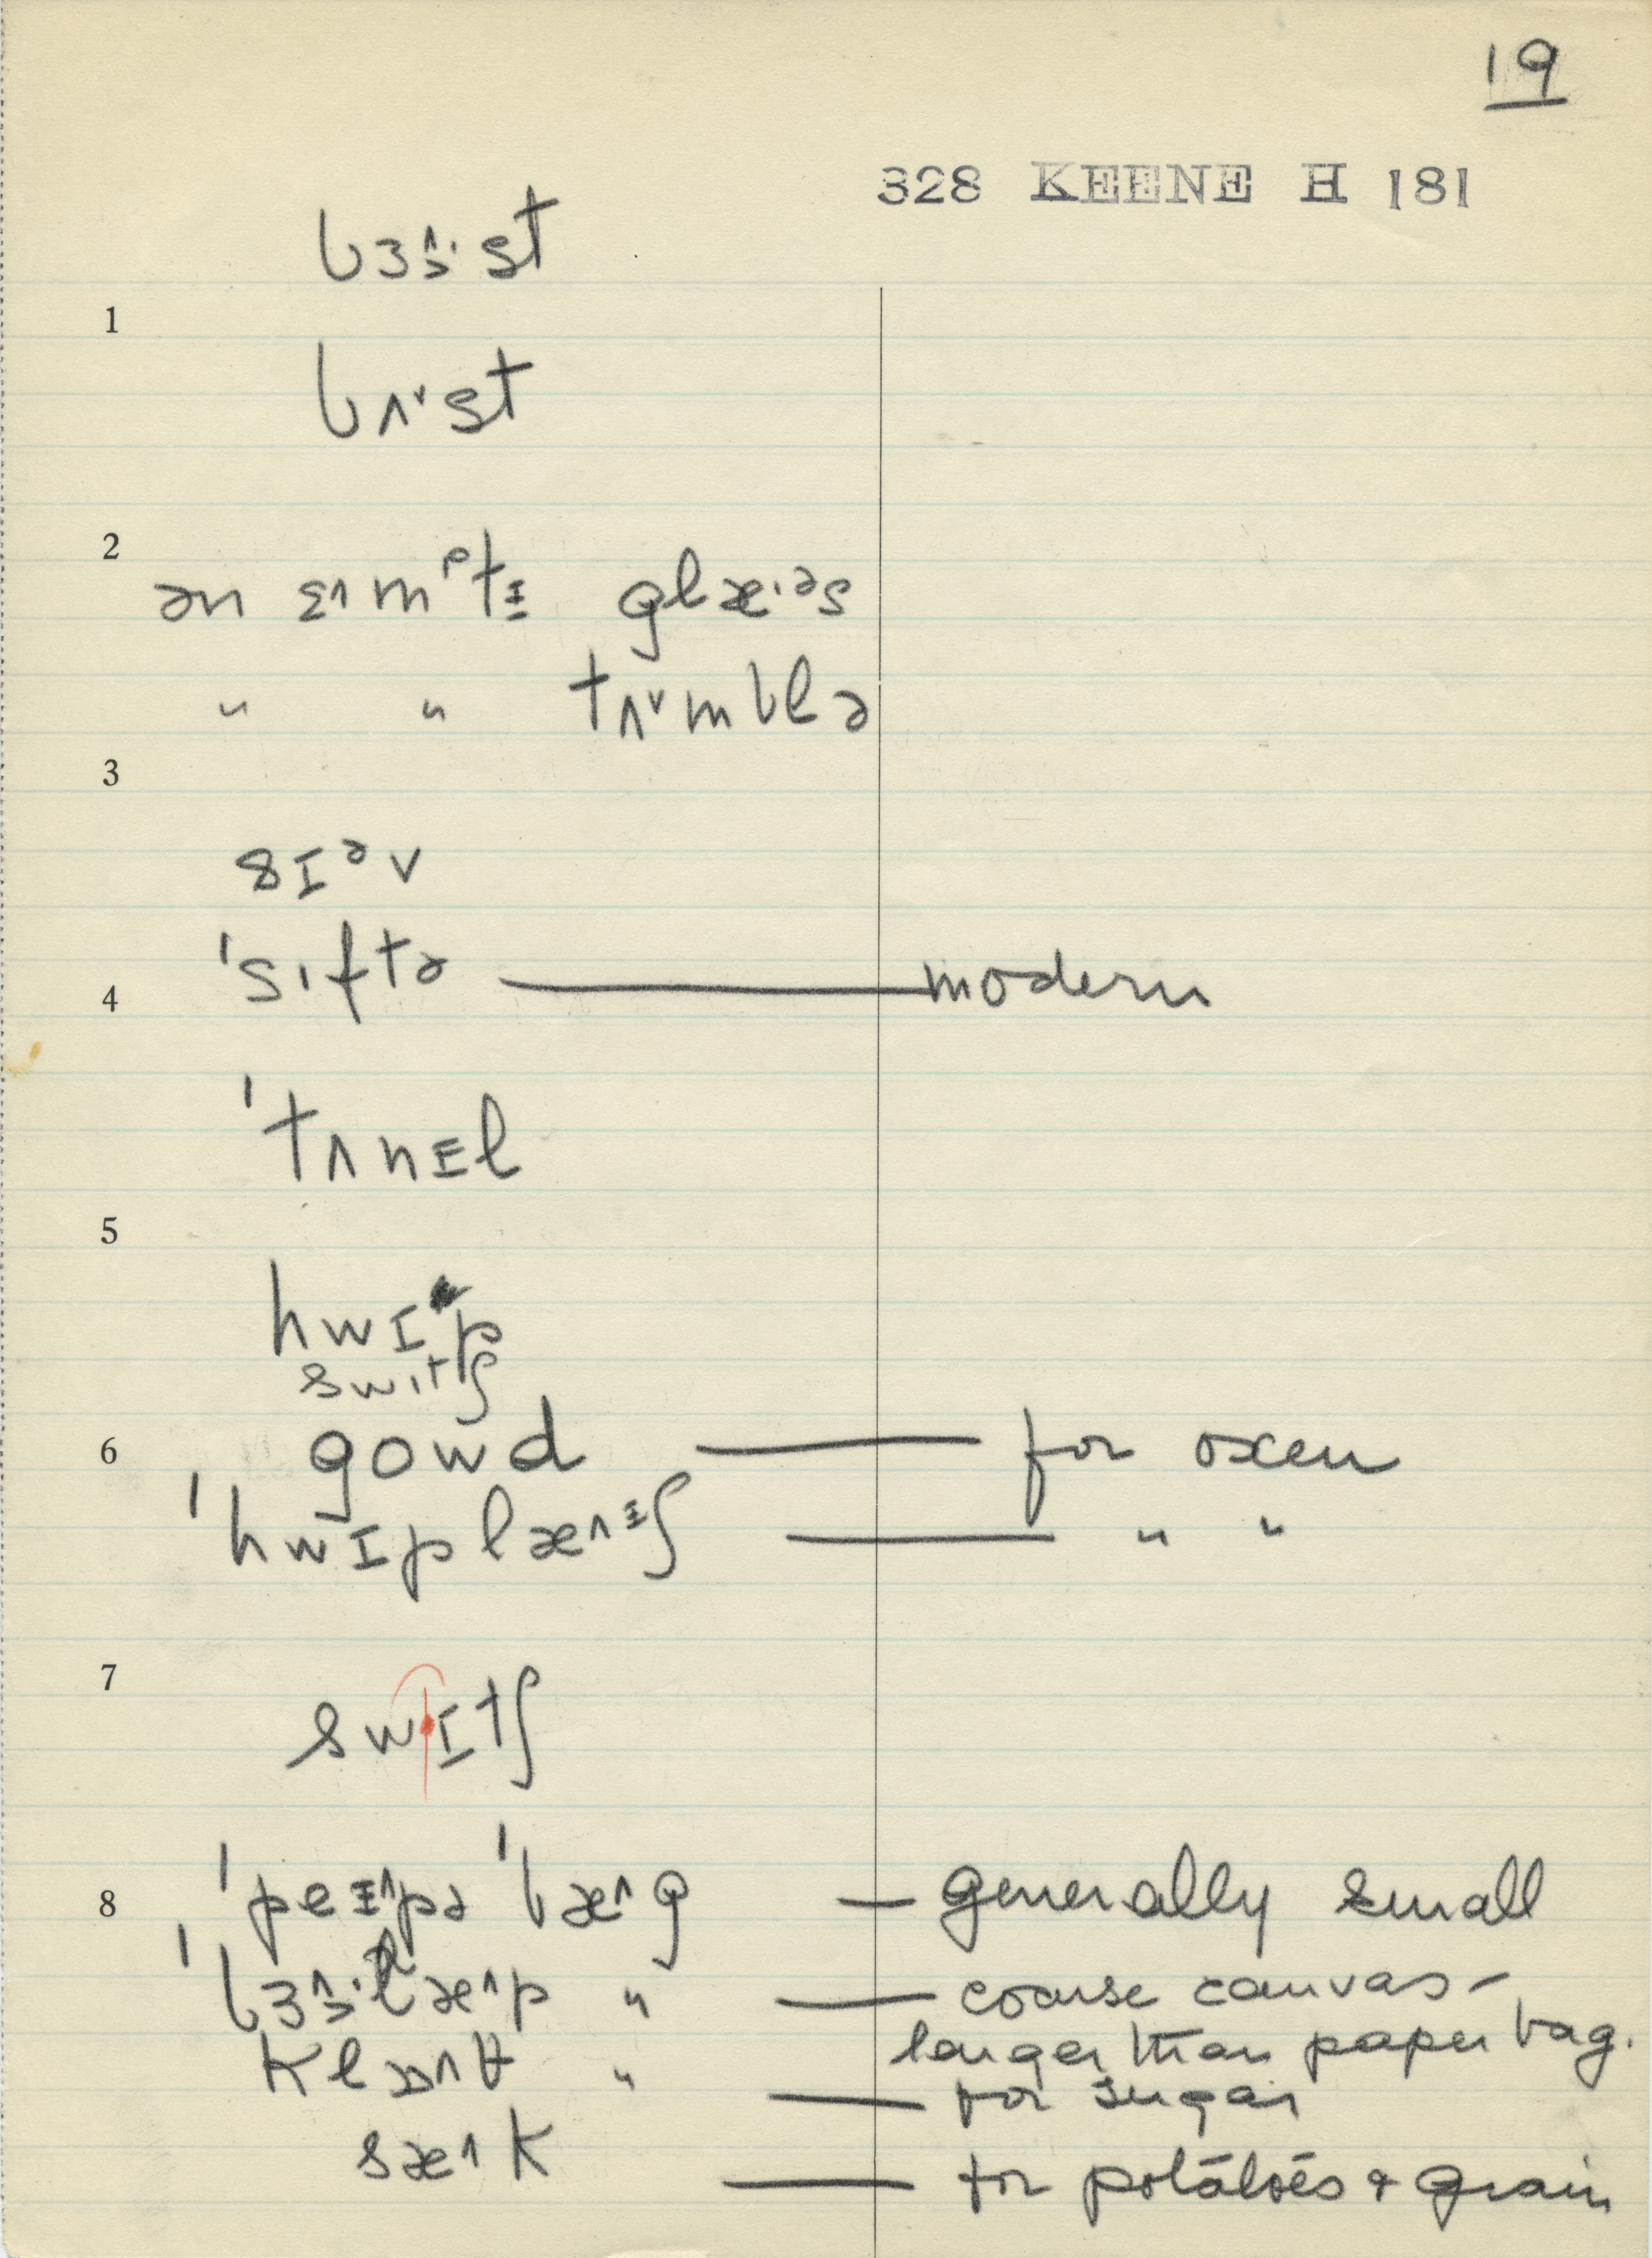 19
328 KEENE H 181
bɜ˄·st
1
bʌ˅st
2
ən ɛ˄mᵖtɪ glæ·ᵊs
" " tʌ˅mblə
3
sɪᵊv
ˈsɪftə — modern
4
ˈtʌnɪl
5
hwɪp
swɪtʃ
6 gowd — for oxen
ˈhwɪplæ˄ᶦʃ — " "
7
swɪtʃ
8 ˈpeɪ˄pə ˈbæ˄g — generally small
ˈbɜ˄·læ˄p " — coarse canvas -
larger than paper bag.
klɒ˄θ " — for sugar
sæ˄k — for potatoes & grain